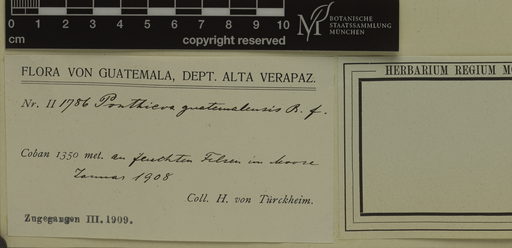 0 1 2 3 4 5 6 7 8 9 10
cm
copyright reserved
BOTANISCHE
STAATSSAMMLUNG
MÜNCHEN
FLORA VON GUATEMALA, DEPT. ALTA VERAPAZ.
Nr. II 1786 Ponthieva guatemalensis R. f.
Coban 1350 met. an feuchten Felsen im Moose
Januar 1908
Coll. H. von Türckheim.
Zugegangen III. 1909.
HERBARIUM REGIUM